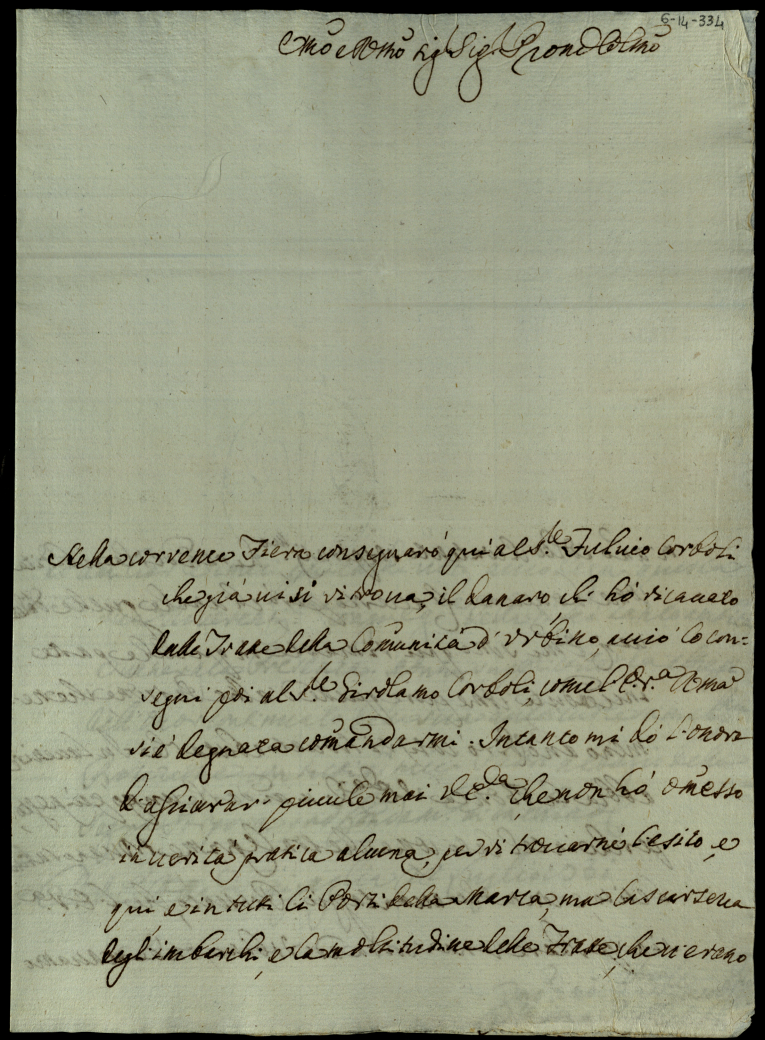 6-14-334
Em̃o e Rm̃o Sig.r Sig.r Prone Colm̃o
Nella corrente Fiera consegnarò quì al S.re Fulvio Corboli
che già vi si ritroua, il danaro, che hò ricauato
dalle Tratte della Com̃unità d'Urbino, acciò lo con=
segni poi al S.re Girolamo Corboli come l'E.ra Rm̃a
si è degnata com̃andarmi. Intanto mi dò l'onore
d'assicurar più che mai V.E.za, che non hò om̃esso
in uerità pratica alcuna, per ritrouarne l'esito, e
quì, e in tutti li Porti della Marca, ma la scarsezza
degl'imbarchi, e la moltitudine delle Tratte, che ui erano